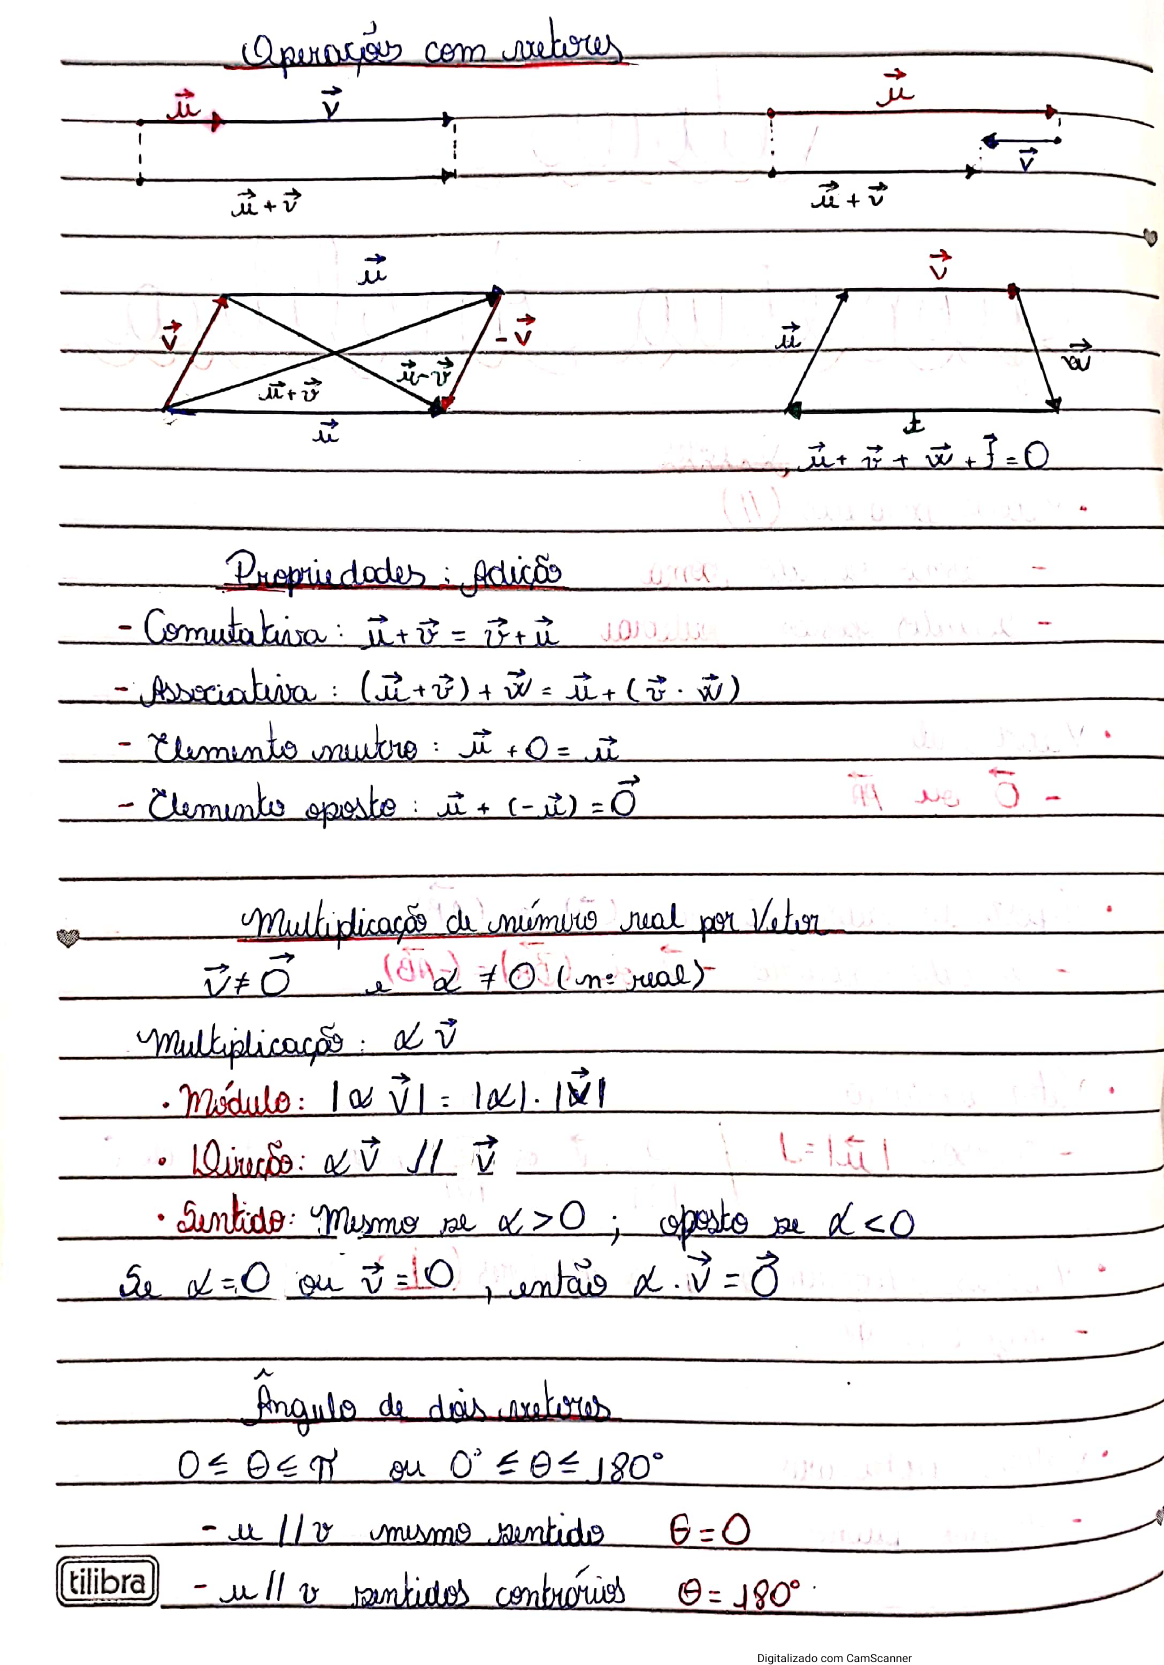 Operações com vetores
u⃗ v⃗ u⃗
v⃗
u⃗ + v⃗ u⃗ + v⃗
u⃗ v⃗
v⃗ -v⃗ u⃗ w⃗
u⃗+v⃗ u⃗-v⃗
u⃗ t
u⃗ + v⃗ + w⃗ + t⃗ = 0
Propriedades: Adição
- Comutativa: u⃗ + v⃗ = v⃗ + u⃗
- Associativa: (u⃗ + v⃗) + w⃗ = u⃗ + (v⃗ · w⃗)
- Elemento neutro: u⃗ + 0 = u⃗
- Elemento oposto: u⃗ + (-u⃗) = 0⃗
Multiplicação de número real por Vetor
v⃗ ≠ 0⃗ e α ≠ 0 (nº real)
Multiplicação: α v⃗
• Módulo: |α v⃗| = |α| · |v⃗|
• Direção: α v⃗ // v⃗
• Sentido: Mesmo se α > 0 ; oposto se α < 0
Se α = 0 ou v⃗ = 0, então α · v⃗ = 0⃗
Ângulo de dois vetores
0 ≤ θ ≤ π ou 0° ≤ θ ≤ 180°
- u // v mesmo sentido θ = 0
- u // v sentidos contrários θ = 180°
tilibra
Digitalizado com CamScanner